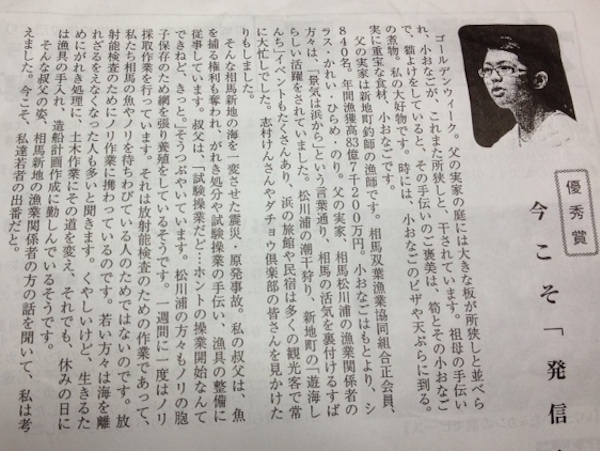 優秀賞
今こそ「発信
ゴールデンウィーク。父の実家の庭には大きな板が所狭しと並べら
れ、小おなごが、これまた所狭しと、干されています。祖母の手伝い
で、猫よけをしていると、その手伝いのご褒美は、筍とその小おなご
の煮物。私の大好物です。時には、小おなごのピザや天ぷらに到る。
実に重宝な食材、小おなごです。
父の実家は新地町釣師の漁師です。相馬双葉漁業協同組合正会員、
840名。年間漁獲高83億7千200万円。小おなごはもとより、シ
ラス・かれい・ひらめ・のり。父の実家、相馬松川浦の漁業関係者の
方々は、「景気は浜から」という言葉通り、相馬の活気を裏付けるすば
らしい活躍をされていました。松川浦の潮干狩り、新地町の「遊海し
んち」イベントもたくさんあり、浜の旅館や民宿は多くの観光客で常
に大忙しでした。志村けんさんやダチョウ倶楽部の皆さんを見かけた
りもしました。
そんな相馬新地の海を一変させた震災・原発事故。私の叔父は、魚
を捕る権利も奪われ、がれき処分や試験操業の手伝い、漁具の整備に
従事しています。叔父は、「試験操業だど…ホントの操業開始なんて
できねど、きっと。」そうつぶやいています。松川浦の方々もノリの胞
子保存のため網を張り養殖をしているそうです。一週間に一度はノリ
採取作業を行っています。それは放射能検査のための作業であって、
私たち相馬の魚やノリを待ちわびている人のためではないのです。放
射能検査のためにノリ作業に携わっているのです。若い方々は海を離
れざるをえなくなった人も多いと聞きます。くやしいけど、生きるた
めにがれき処理に、土木作業にその道を変え、それでも、休みの日に
は漁具の手入れ、造船計画作成に勤しんでいるそうです。
そんな叔父の姿、相馬新地の漁業関係者の方の話を聞いて、私は考
えました。今こそ、私達若者の出番だと。